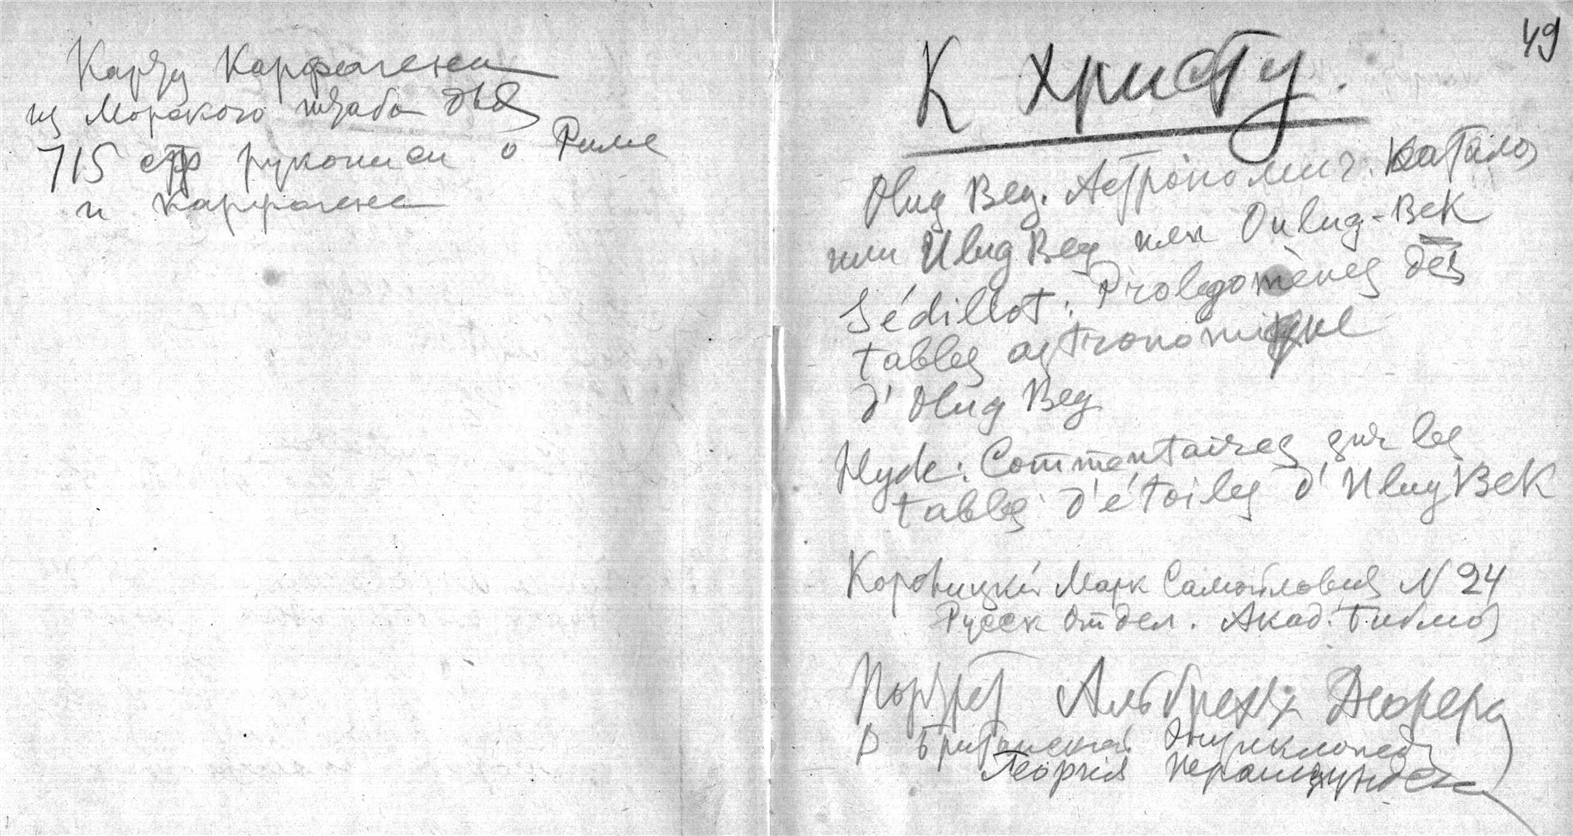 Карту Карфагена
из Морского штаба для
715 стр рукописи о Риме
и Карфагене
49
К Христу.
Olug Beg. Астрономич. Каталог
или Ulug Beg или Oulug-Bek
Sédillot: Prolegomènes des
tables astronomique
d'Olug Beg
Hyde: Commentaires sur les
tables d'étoiles d'Ulug Bek
Марк Самойлович N 24
Русск отдел. Акад. Библиот
Портрет Альбрехта Дюрера
В Британской Энциклопед
Теория